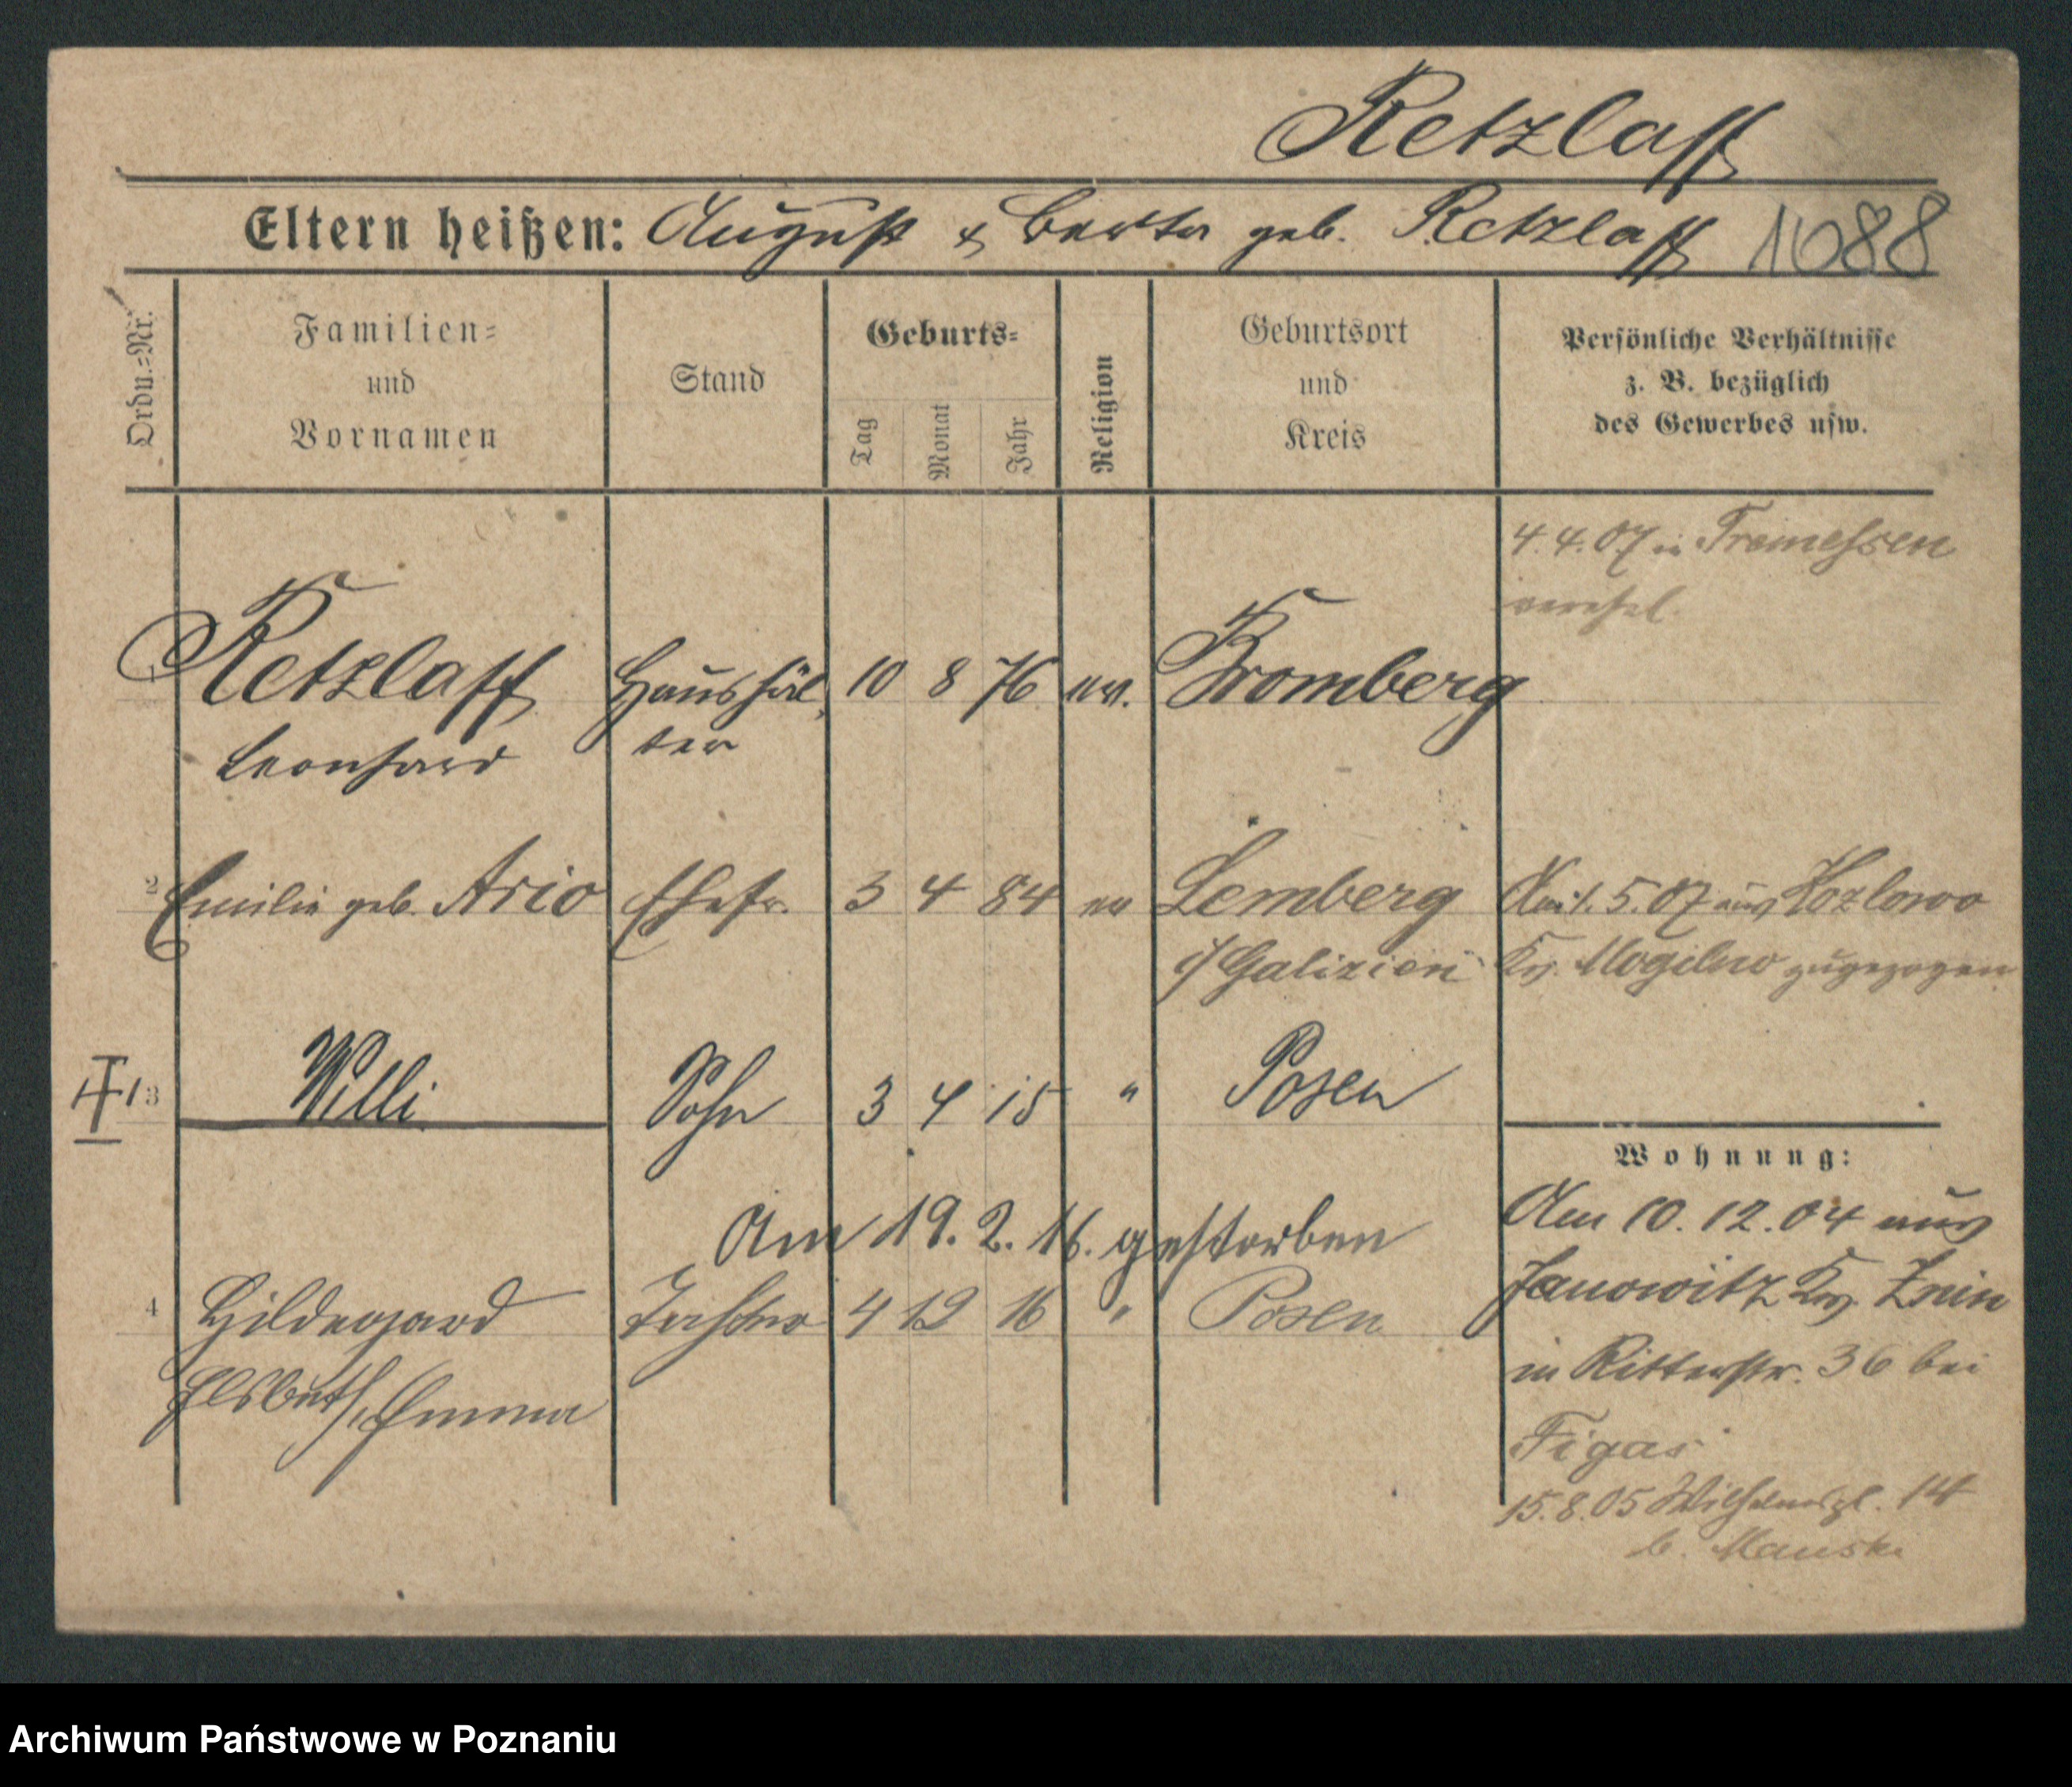 Retzlaff
Eltern heißen: August & Berta geb. Retzlaff 11088
Ordn.-Nr.
Familien-
und
Vornamen
Stand
Geburts-
Tag
Monat
Jahr
Religion
Geburtsort
und
Kreis
Persönliche Verhältnisse
z. B. bezüglich
des Gewerbes usw.
4. 4. 07 in Tremessen
verehel.
1 Retzlaff Haushäl- 10 8 76 ev. Bromberg
Leonhard ter
2 Emilie geb. Ario Ehefr. 3 4 84 ev Lemberg Am 1. 5. 07 aus Kozlowo
i/Galizien Krs. Mogilno zugezogen
3 Willi Sohn 3 4 15 " Posen
Wohnung:
Am 19. 2. 16. gestorben
4 Hildegard Tochter 4 12 16 " Posen
Elsbeth, Emma
Am 10. 12. 04 aus
Janowitz Krs. Znin
in Ritterstr. 36 bei
Figas
15. 8. 05 Wilhelmspl. 14
b. Manske
Archiwum Państwowe w Poznaniu